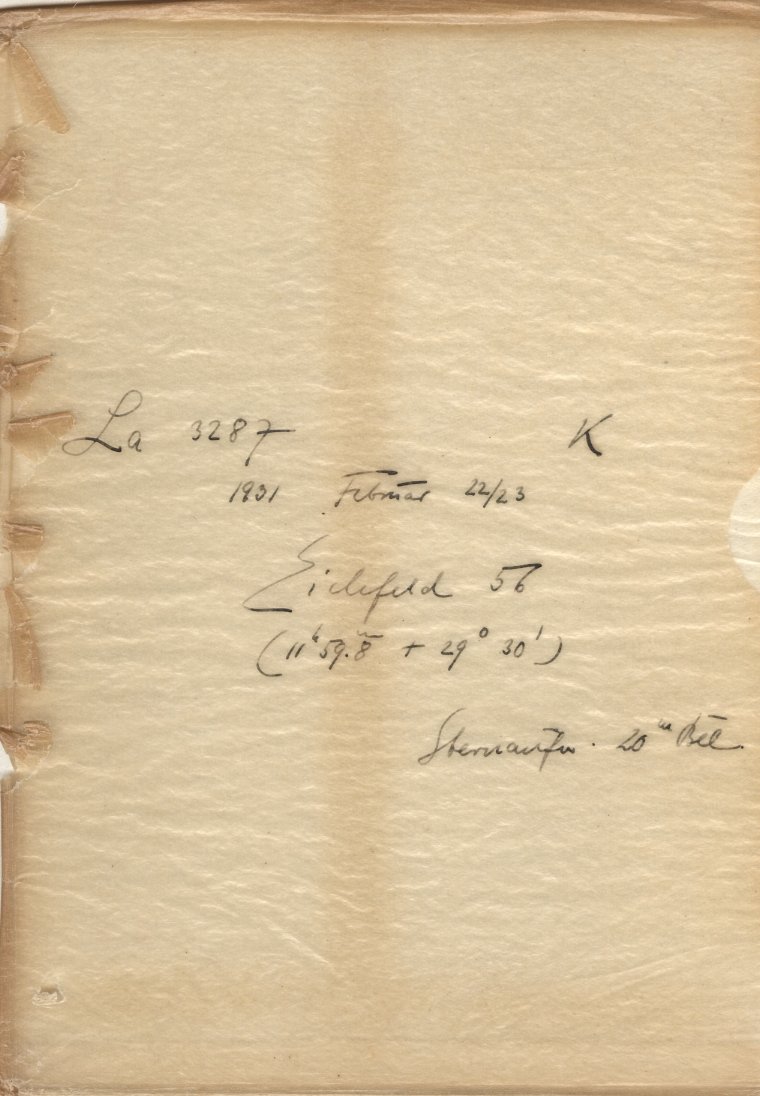 La 3287 K
1931 Februar 22/23
Eichfeld 56
(11ʰ 59.8ᵐ + 29° 30')
Sternaufn. 20ᵐ Bel.